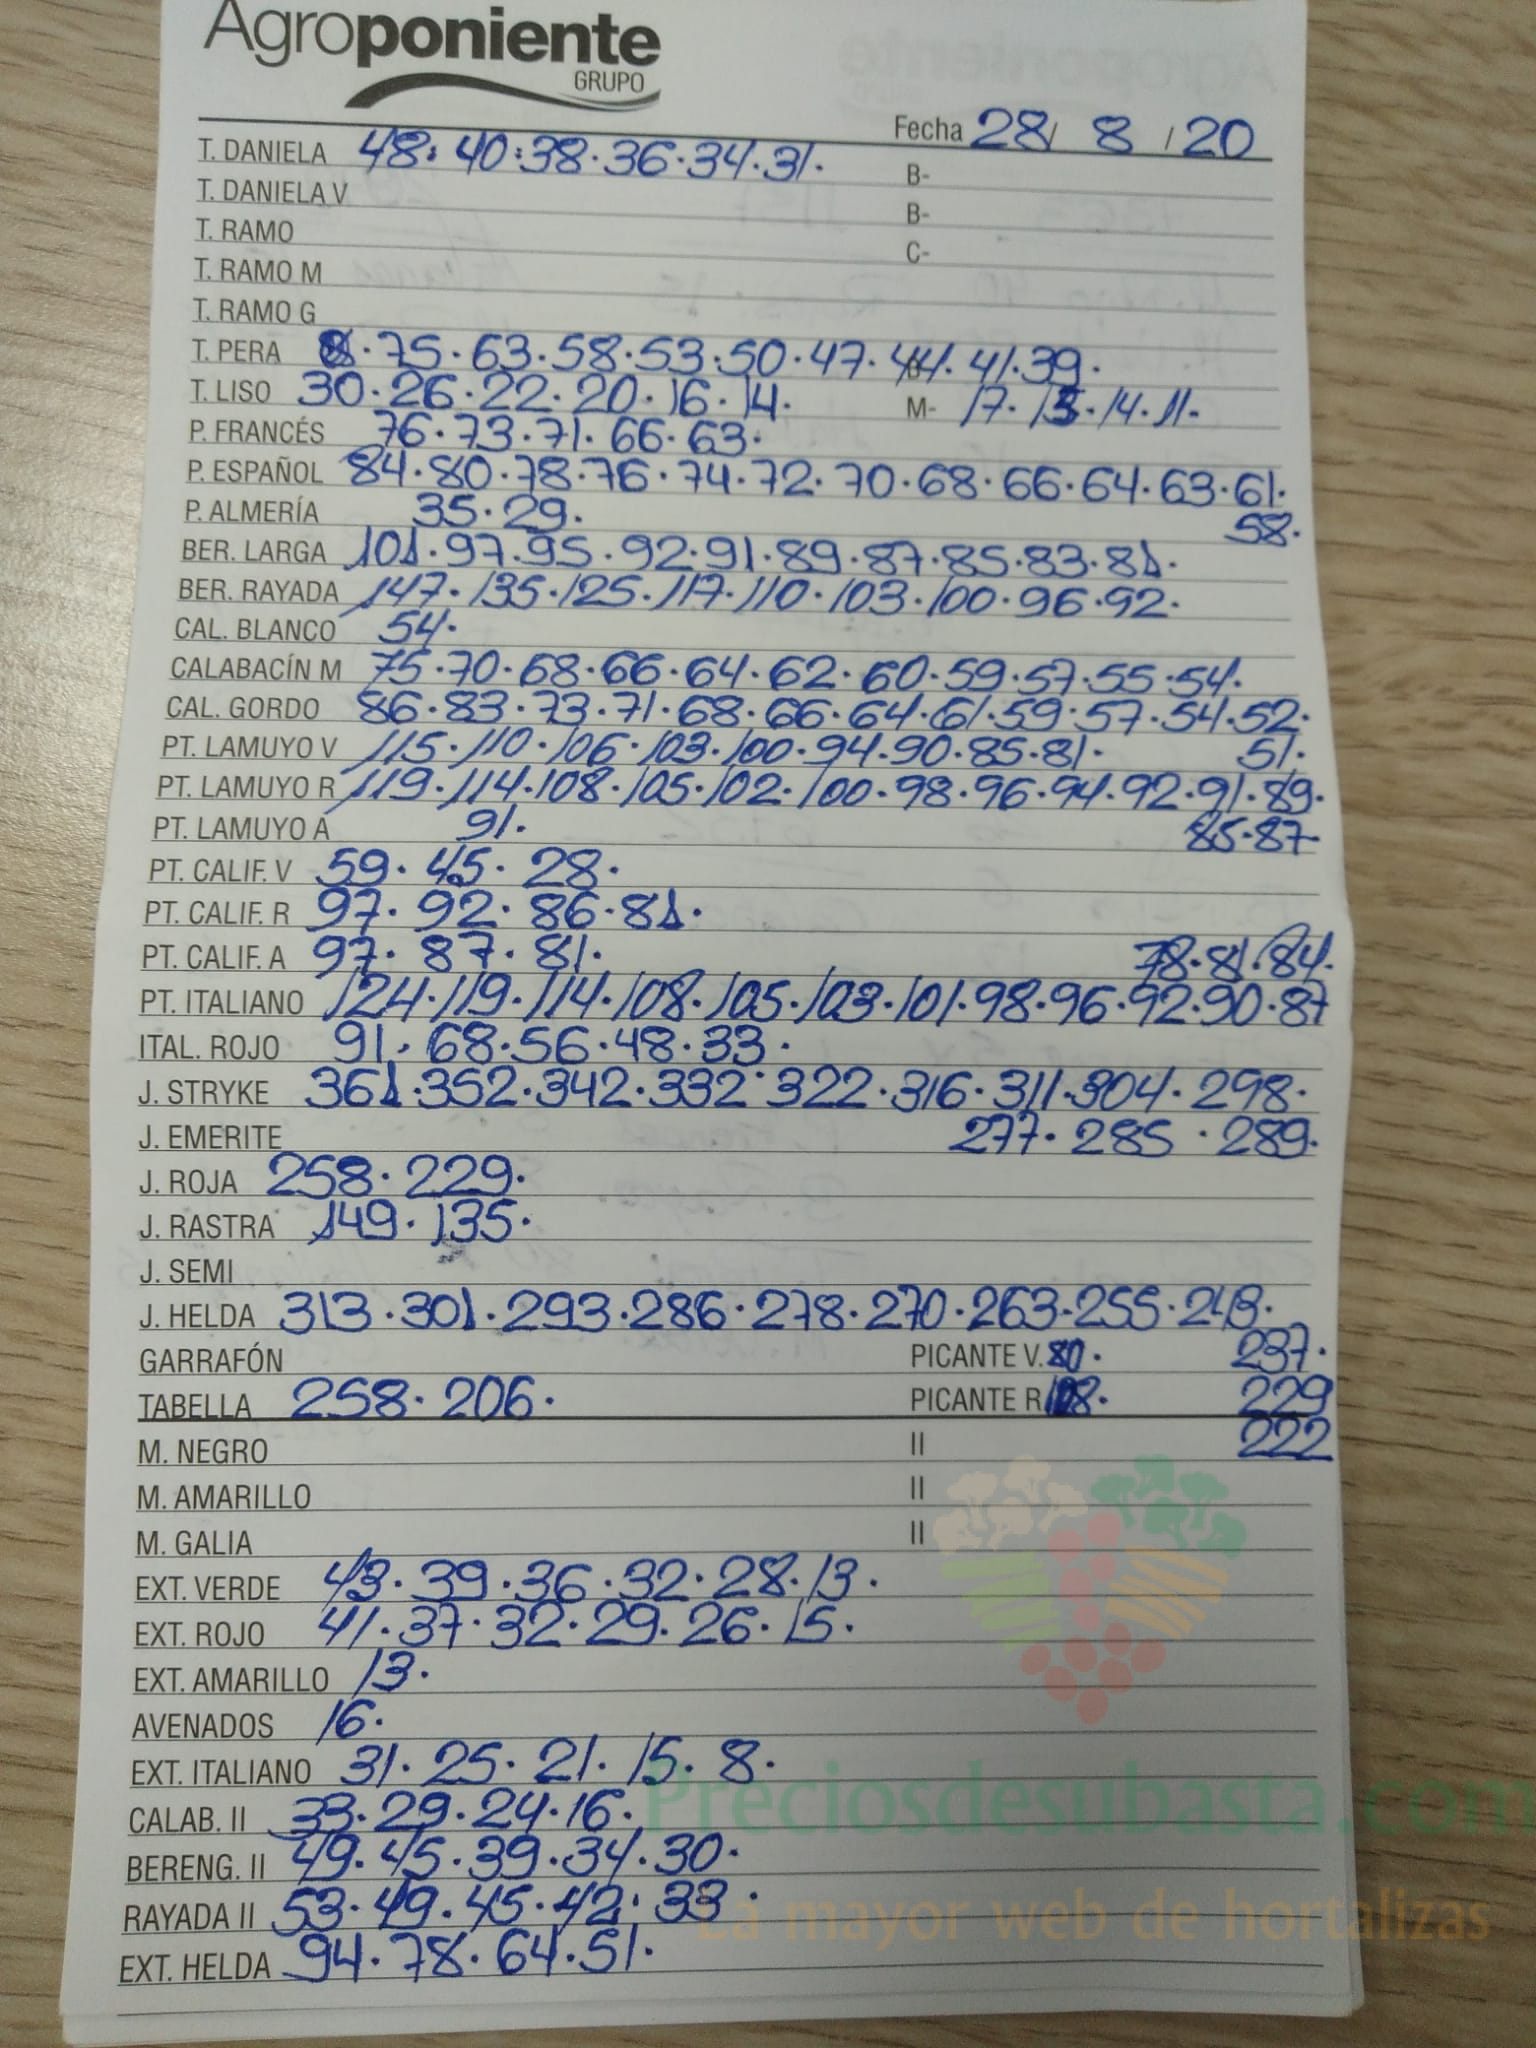 Agroponiente
GRUPO
Fecha 28/ 8 /20
T. DANIELA 48: 40:38·36·34·31· B-
T. DANIELA V B-
T. RAMO C-
T. RAMO M
T. RAMO G
T. PERA ·75·63·58·53·50·47·44·41·39·
T. LISO 30·26·22·20·16·14· M- 17·13·14·11·
P. FRANCÉS 76·73·71·66·63·
P. ESPAÑOL 84·80·78·76·74·72·70·68·66·64·63·61·
P. ALMERÍA 35·29· 58·
BER. LARGA 101·97·95·92·91·89·87·85·83·81·
BER. RAYADA 147·135·125·117·110·103·100·96·92·
CAL. BLANCO 54·
CALABACÍN M 75·70·68·66·64·62·60·59·57·55·54·
CAL. GORDO 86·83·73·71·68·66·64·61·59·57·54·52·
PT. LAMUYO V 115·110·106·103·100·94·90·85·81· 51·
PT. LAMUYO R 119·114·108·105·102·100·98·96·94·92·91·89·
PT. LAMUYO A 91· 85·87·
PT. CALIF. V 59·45·28·
PT. CALIF. R 97·92·86·81·
PT. CALIF. A 97·87·81· 78·81·84·
PT. ITALIANO 124·119·114·108·105·103·101·98·96·92·90·87
ITAL. ROJO 91·68·56·48·33·
J. STRYKE 361·352·342·332·322·316·311·304·298·
J. EMERITE 277·285·289·
J. ROJA 258·229·
J. RASTRA 149·135·
J. SEMI
J. HELDA 313·301·293·286·278·270·263-255·243·
GARRAFÓN PICANTE V. 80· 237·
TABELLA 258·206· PICANTE R 108· 229
M. NEGRO II 222
M. AMARILLO II
M. GALIA II
EXT. VERDE 43·39·36·32·28·13·
EXT. ROJO 41·37·32·29·26·15·
EXT. AMARILLO 13·
AVENADOS 16·
EXT. ITALIANO 31·25·21·15·8·
Preciosdesubasta.com
CALAB. II 33·29·24·16·
BERENG. II 49·45·39·34·30·
RAYADA II 53·49·45·42·33·
La mayor web de hortalizas
EXT. HELDA 94·78·64·51·